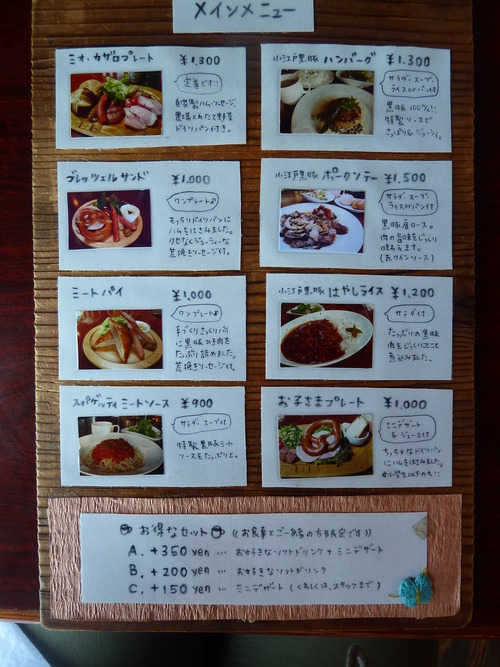 メインメニュー
ミオ・カザロプレート ¥1,300
定番です!!
自家製ハム、ソーセージ。
農場とれたて野菜
ドイツパン付き。
小江戸黒豚 ハンバーグ ¥1,300
サラダ、スープ、
ライスorパン付
黒豚 100%!!
特製ソースで
さっぱり&ジューシー。
ブレッツェル サンド ¥1,000
ワンプレート♪
もっちりドイツパンに
ハムをはさみました。
クセなくジューシーな
荒挽きソーセージ付。
小江戸黒豚 ポークソテー ¥1,500
サラダ、スープ、
ライスorパン付
黒豚肩ロース。
肉の旨味をじっくり
味わえます。
(赤ワインソース)
ミートパイ ¥1,000
ワンプレート♪
手づくりさっくりパイ
に黒豚ひき肉を
たっぷり詰めました。
荒挽きソーセージ付。
小江戸黒豚 はやしライス ¥1,200
サラダ付
たっぷりの黒豚
肉をじっくりことこと
煮込みました。
スパゲッティ ミートソース ¥900
サラダ・スープ付
特製黒豚ミート
ソースをたっぷりと。
お子さまプレート ¥1,000
ミニデザート
& ジュース付
ちっちゃなドイツパン
にハムをはさみました。
お得なセット (お食事とご一緒の方限定です)
A. +350 yen … お好きなソフトドリンク + ミニデザート
B. +200 yen … お好きなソフトドリンク
C. +150 yen … ミニデザート (くわしくは、スタッフまで)